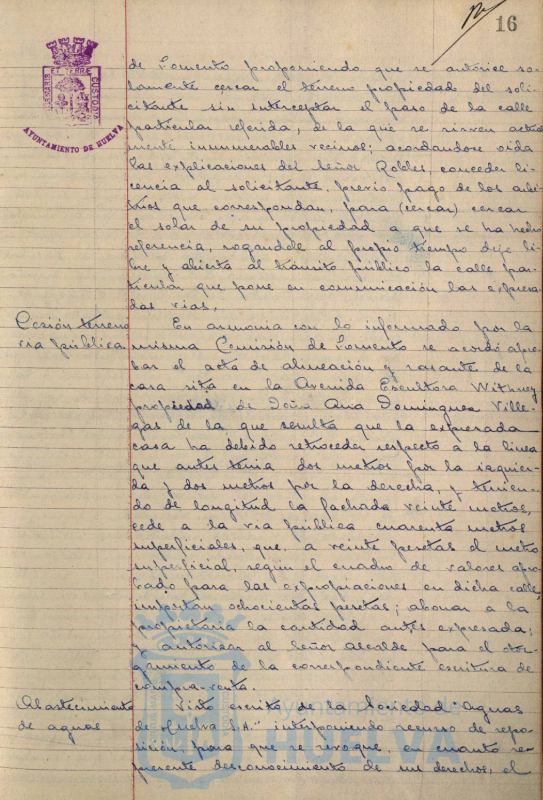 16
de Fomento proponiendo que se autorice so-
lamente cercar el terreno propiedad del soli-
citante sin interceptar el paso de la calle
particular referida, de la que se sirven actual
mente innumerables vecinos; acordandose oida
las explicaciones del Señor Robles, conceder li-
cencia al solicitante, previo pago de los arbi-
trios que correspondan, para (cercar) cercar
el solar de su propiedad a que se ha hecho
referencia, rogandole al propio tiempo deje li-
bre y abierta al tránsito público la calle par-
ticular que pone en comunicación las expresa-
das vias.
Cesión terreno
via pública.
En armonia con lo informado por la
misma Comisión de Fomento se acordó apro-
bar el acta de alineación y rasante de la
casa sita en la Avenida Escultora Withney
propiedad de Doña Ana Dominguez Ville-
gas de la que resulta que la expresada
casa ha debido retroceder respecto a la linea
que antes tenia dos metros por la izquier-
da y dos metros por la derecha, y tenien-
do de longitud la fachada veinte metros,
cede a la via pública cuarenta metros
superficiales, que, a veinte pesetas el metro
superficial, según el cuadro de valores apro-
bado para las expropiaciones en dicha calle,
importan ochocientas pesetas; abonar a la
propietaria la cantidad antes expresada;
y autorizar al Señor Alcalde para el otor-
gamiento de la correspondiente escritura de
compra-venta.
Abastecimiento
de aguas
Visto escrito de la Sociedad "Aguas
de Huelva S.A." interponiendo recurso de repo-
sición, para que se revoque, en cuanto re-
presente desconocimiento de sus derechos, el
ET TERRÆ
CUSTODIA
AYUNTAMIENTO DE HUELVA
Ayuntamiento de
HUELVA